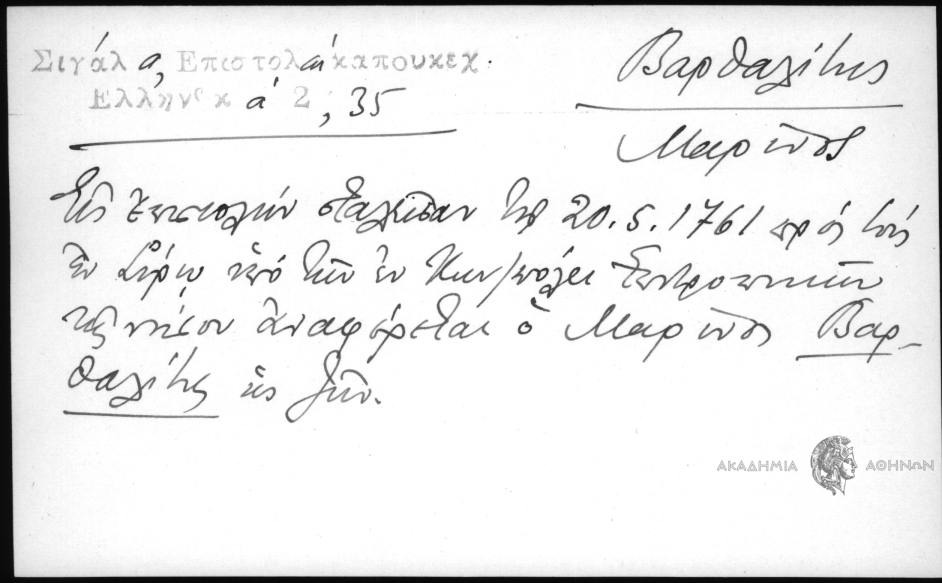 Σιγάλα, Επιστολαί καπουκεχ.
Ελληνικά 2, 35
Βαρθαλίτης
Μαρῖνος
Εἰς ἐπιστολήν σταλεῖσαν τῇ 20.5.1761 πρός τούς
ἐν Σύρῳ ὑπό τῶν ἐν Κων/πόλει Ἐπιτροπικῶν
τῆς νήσου ἀναφέρεται ὁ Μαρῖνος Βαρ-
θαλίτης ὡς ζῶν.
ΑΚΑΔΗΜΙΑ ΑΘΗΝΩΝ